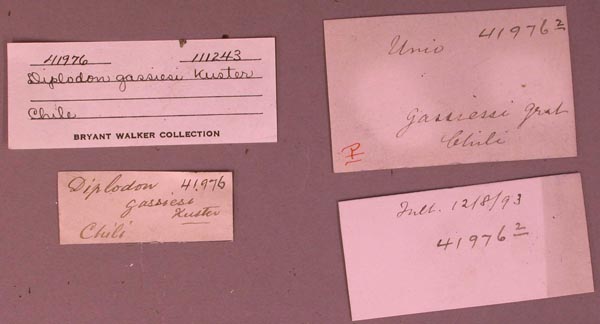 41976 111243
Diplodon gassiesi Kuster
Chile
BRYANT WALKER COLLECTION
Unio 41976 2
gassiessi
Chili
Diplodon 41.976
gassiesi
Kuster
Chili
12/8/93
41976 2